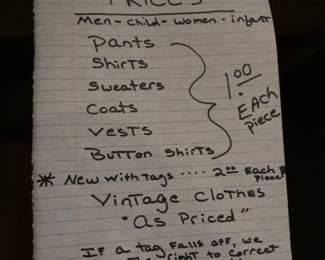 PRICES
Men - child - women - infant
Pants
Shirts
Sweaters
Coats
Vests
Button Shirts
1.00 EACH piece
* New with tags .... 2.00 Each Piece
Vintage Clothes
"As Priced"
If a tag falls off, we
right to correct